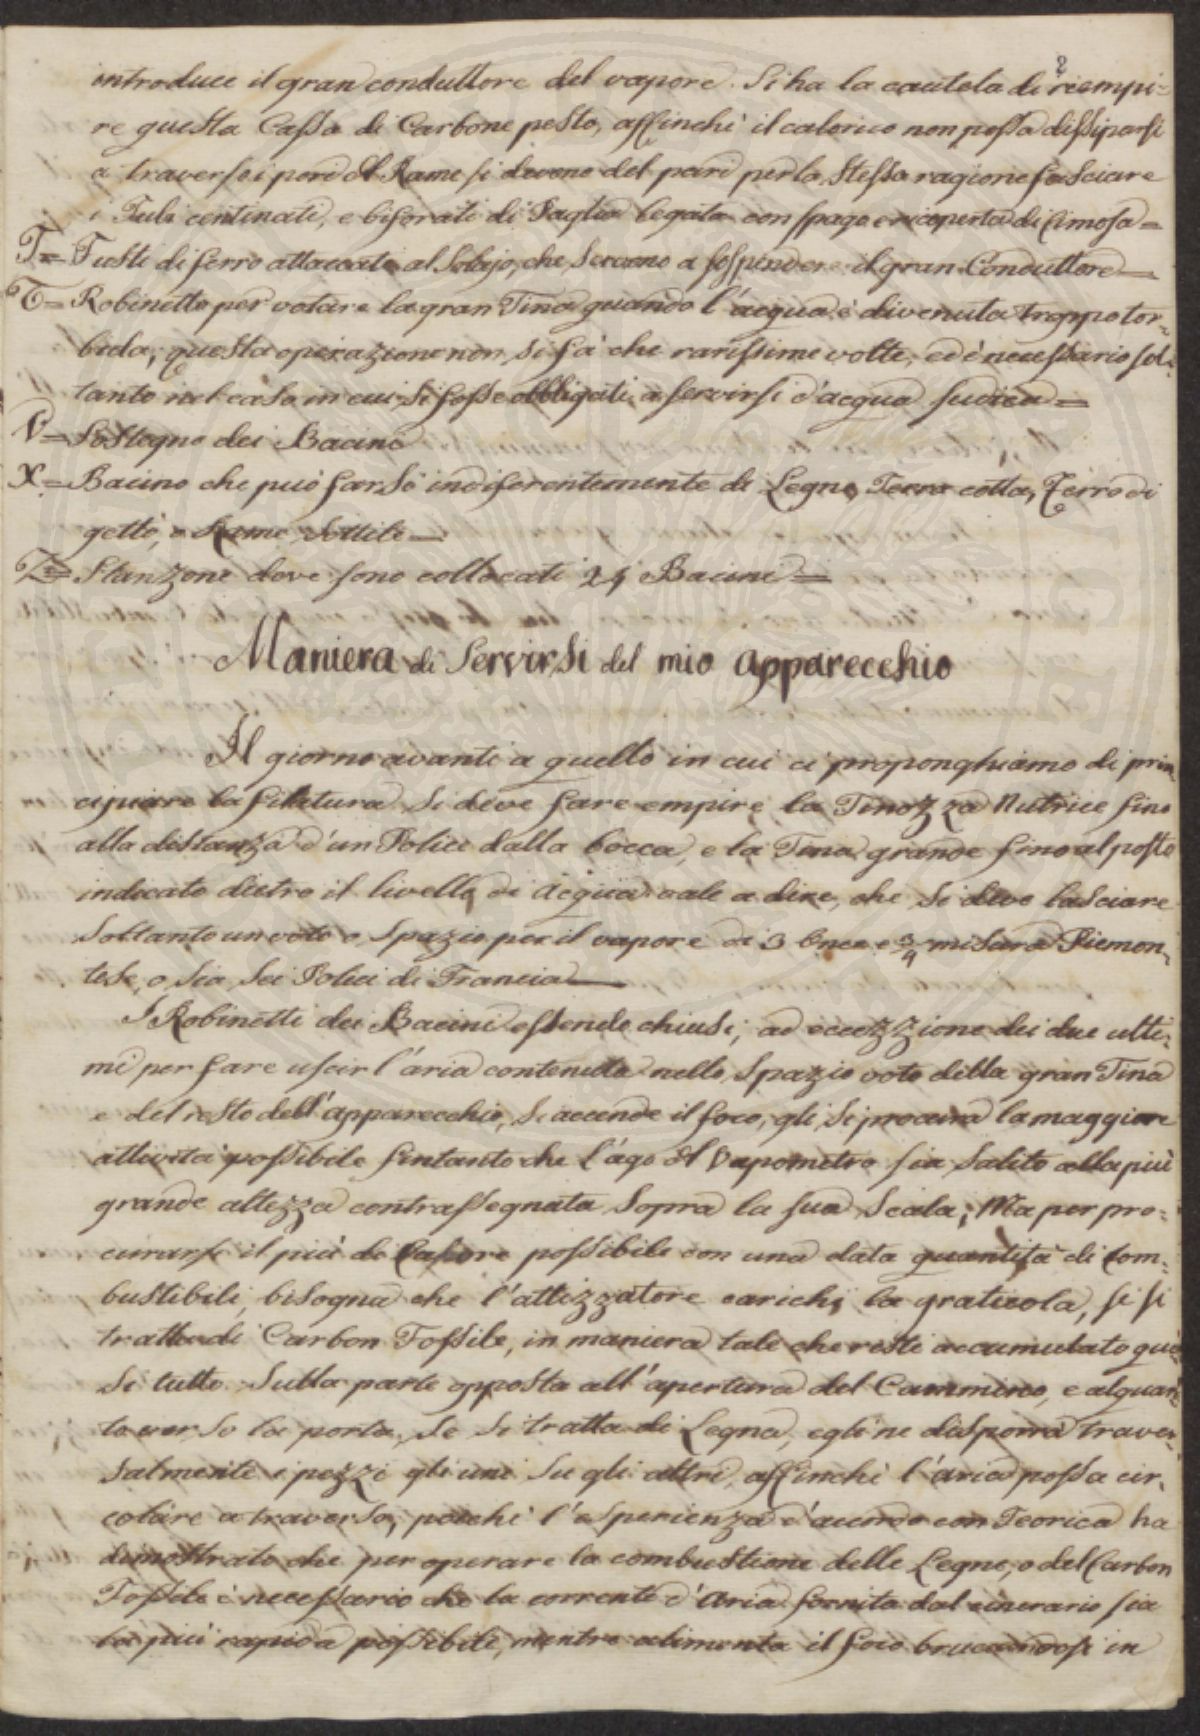 2
introduce il gran conduttore del vapore. Si ha la cautela di riempi=
re questa Cassa di Carbone pesto, affinchè il calorico non possa dissiparsi
a traverso i pori del Rame si devono del pari per la stessa ragione fasciare
i Tubi centinati, e biforati di Paglia legata con spago e ricoperta di Cimosa=
T.= Fusti di ferro attaccati al Solajo, che servono a sospendere il gran Conduttore—
T= Robinetto per votare la gran Tina quando l'acqua è divenuta troppo tor=
bida, questa operazione non si fà che rarissime volte, ed è necessario sol=
tanto nel caso in cui si fosse obbligati a servirsi d'acqua sudicia=
V= Sostegno dei Bacini
X.= Bacino che può farsi indiferentemente di Legno, Terra cotta, Ferro di
getto, o Rame Sottile—
Z= Stanzone dove sono collocati 24 Bacini=
Maniera di Servirsi del mio apparecchio
Il giorno avanti a quello in cui ci proponghiamo di prin
cipiare la filatura si deve fare empire la Tinozza Nutrice fino
alla distanza d'un Police dalla bocca, e la Tina grande fino al posto
indicato dietro il livello di acqua vale a dire, che si deve lasciare
soltanto un voto o spazio per il vapore di 3 Once e 3/4 misura Piemon=
tese, o sia sei Polici di Francia—
I Robinetti dei Bacini essendo chiusi, ad eccezzione dei due ulti=
mi per fare uscir l'aria contenuta nello spazio voto della gran Tina
e del resto dell'apparecchio, si accende il foco, gli si procura la maggiore
attività possibile fintanto che l'ago del Vapometro sia salito alla più
grande altezza contrassegnata sopra la sua Scala; Ma per pro=
curarsi il più di Calore possibile con una data quantità di Com=
bustibili, bisogna che l'attizzatore carichi la graticola, se si
tratta di Carbon Fossile, in maniera tale che resti accumulato qua
si tutto sulla parte opposta all'apertura del Cammino, e alquan=
to verso la porta, se si tratta di Legna, egli ne disporrà traver=
salmente i pezzi gli uni su gli altri, affinchè l'aria possa cir=
colare a traverso, poichè l'esperienza d'accordo con Teorica ha
dimostrato che per operare la combustione delle Legne, o del Carbon
Fossile è necessario che la corrente d'Aria fornita dal cinerario sia
la più rapida possibile, mentre alimenta il foco bruciandosi in